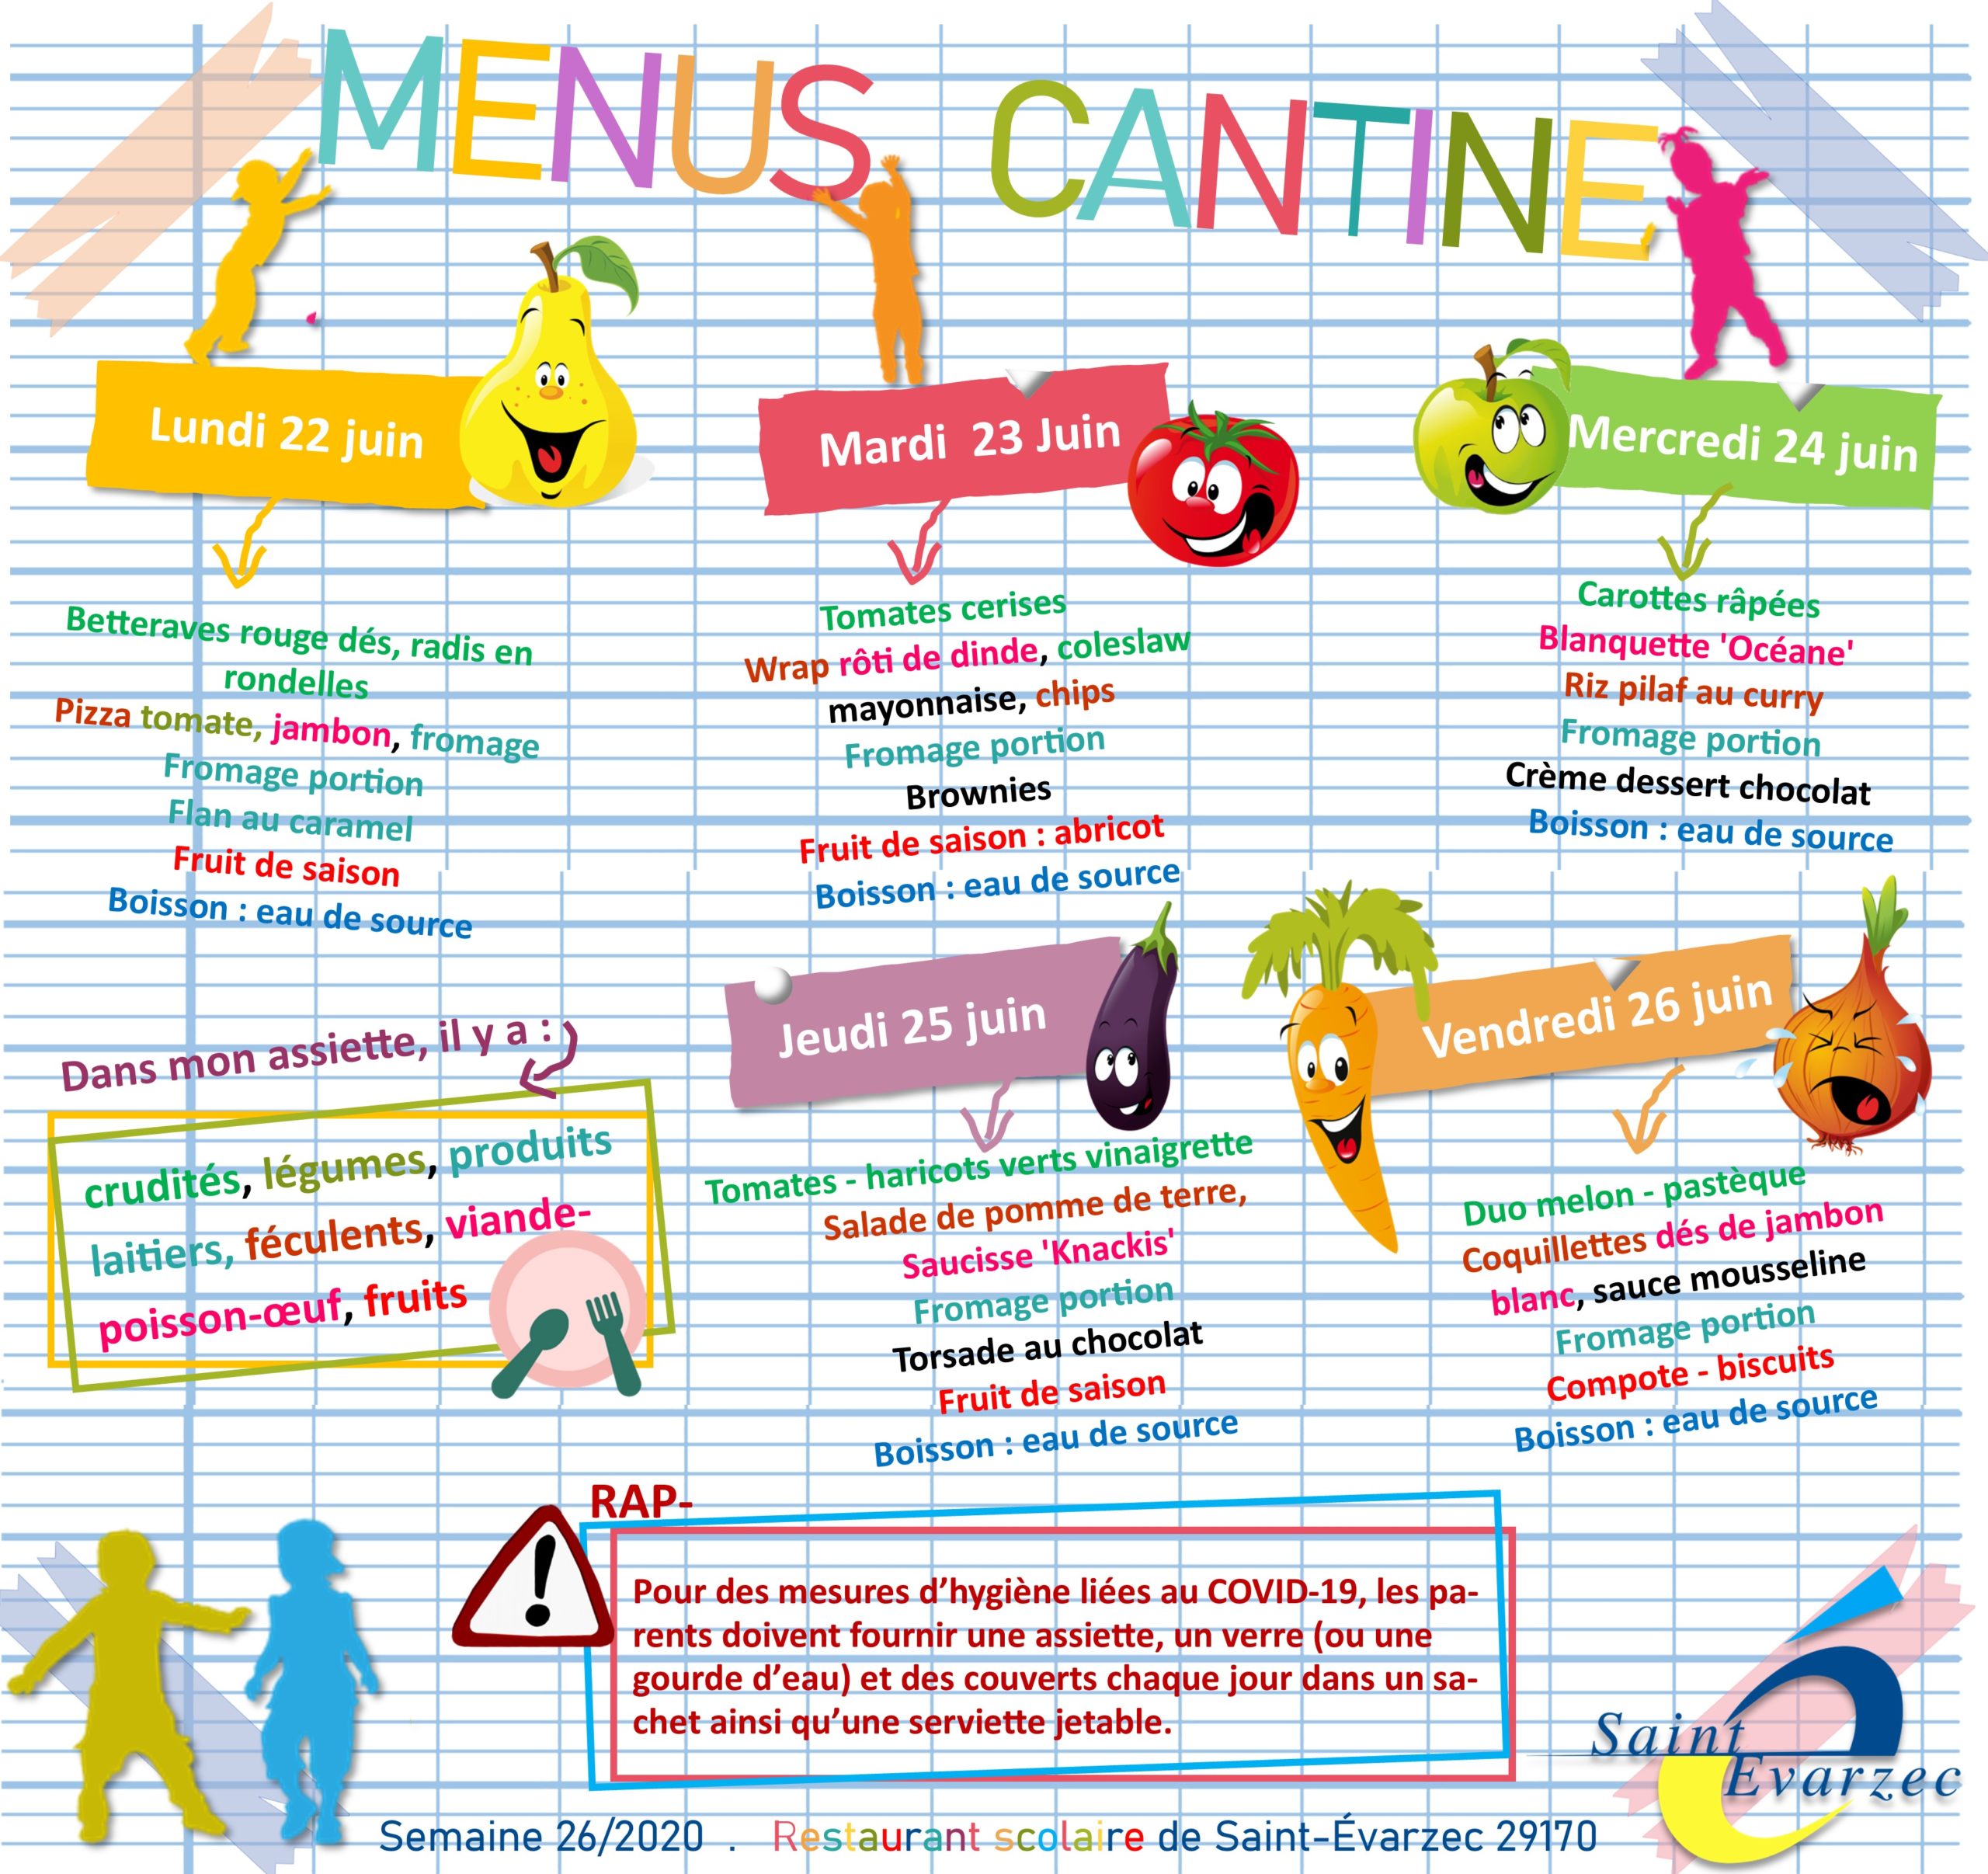 MENUS CANTINE
Lundi 22 juin
Betteraves rouge dés, radis en
rondelles
Pizza tomate, jambon, fromage
Fromage portion
Flan au caramel
Fruit de saison
Boisson : eau de source
Mardi 23 Juin
Tomates cerises
Wrap rôti de dinde, coleslaw
mayonnaise, chips
Fromage portion
Brownies
Fruit de saison : abricot
Boisson : eau de source
Mercredi 24 juin
Carottes râpées
Blanquette 'Océane'
Riz pilaf au curry
Fromage portion
Crème dessert chocolat
Boisson : eau de source
Dans mon assiette, il y a :
crudités, légumes, produits
laitiers, féculents, viande-
poisson-œuf, fruits
Jeudi 25 juin
Tomates - haricots verts vinaigrette
Salade de pomme de terre,
Saucisse 'Knackis'
Fromage portion
Torsade au chocolat
Fruit de saison
Boisson : eau de source
Vendredi 26 juin
Duo melon - pastèque
Coquillettes dés de jambon
blanc, sauce mousseline
Fromage portion
Compote - biscuits
Boisson : eau de source
RAP-
Pour des mesures d’hygiène liées au COVID-19, les pa-
rents doivent fournir une assiette, un verre (ou une
gourde d’eau) et des couverts chaque jour dans un sa-
chet ainsi qu’une serviette jetable.
Saint
Evarzec
Semaine 26/2020 . Restaurant scolaire de Saint-Évarzec 29170